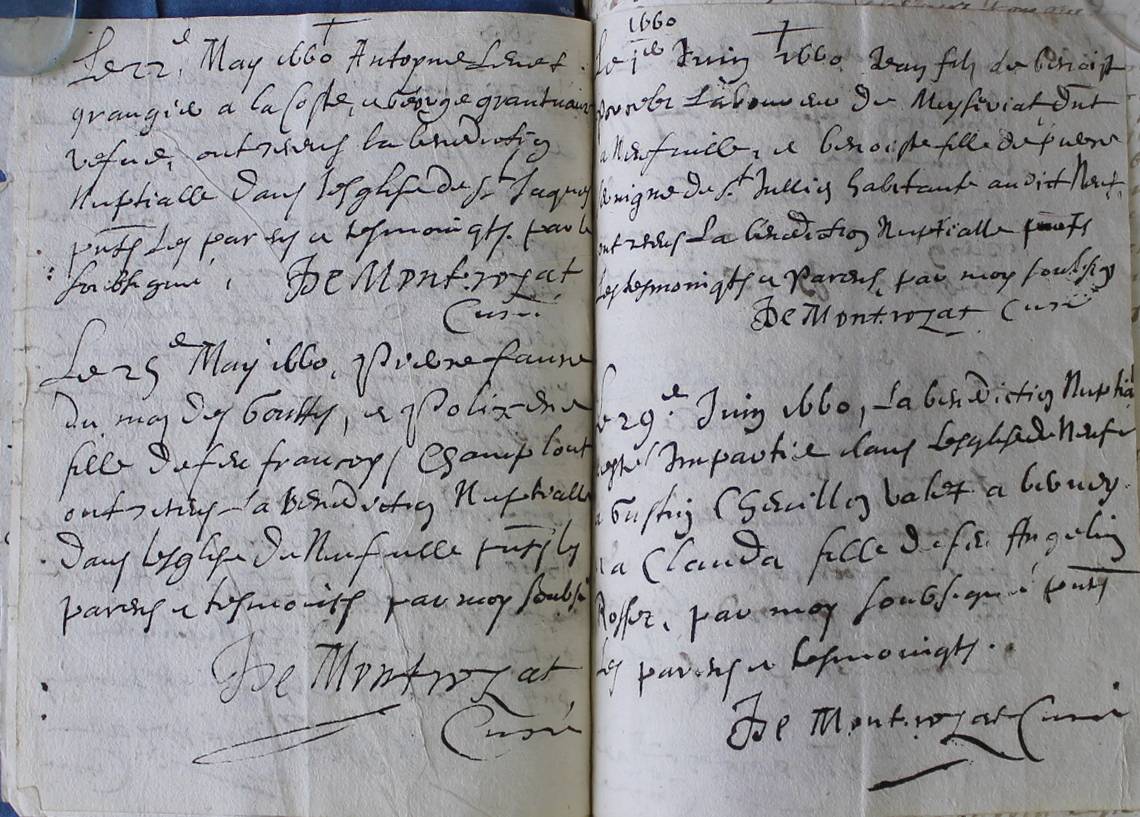 Le 22.e May 1660 Antoyne Lenet
grangié a la Coste, a george grantuain
vefue, ont receus la benediction
Nuptialle dans lesglise de St Jaques
pnts Les parens et tesmoingts. par le
soubsigné,
De Montrozat
Curé
Le 25.e May 1660, Pierre faure
du mas des Gouttes, et Polixene
fille de feu françoys Champlout
ont receus La Benediction Nuptialle
dans lesglise du Neufville pnts les
parens et tesmoints par moy soubsi
De Montrozat
Curé
1660
Le 1.e Juin 1660 Jean fils de benoist
Laboureur de
a Neufville, et benoiste fille de pierre
de St Jullien habitante audict Neuf
ont receus La benediction Nuptialle pnts
les tesmoingts et Parens, par moy soubsig
De Montrozat Curé
Le 29.e Juin 1660, La benediction Nuptia
Impartie dans Lesglise de Neufvi
a Gustin Chevillon valet a
a Clauda fille de feu Angelin
Rosset, par moy soubsigné pnts
les parens et tesmoingts.
De Montrozat Curé